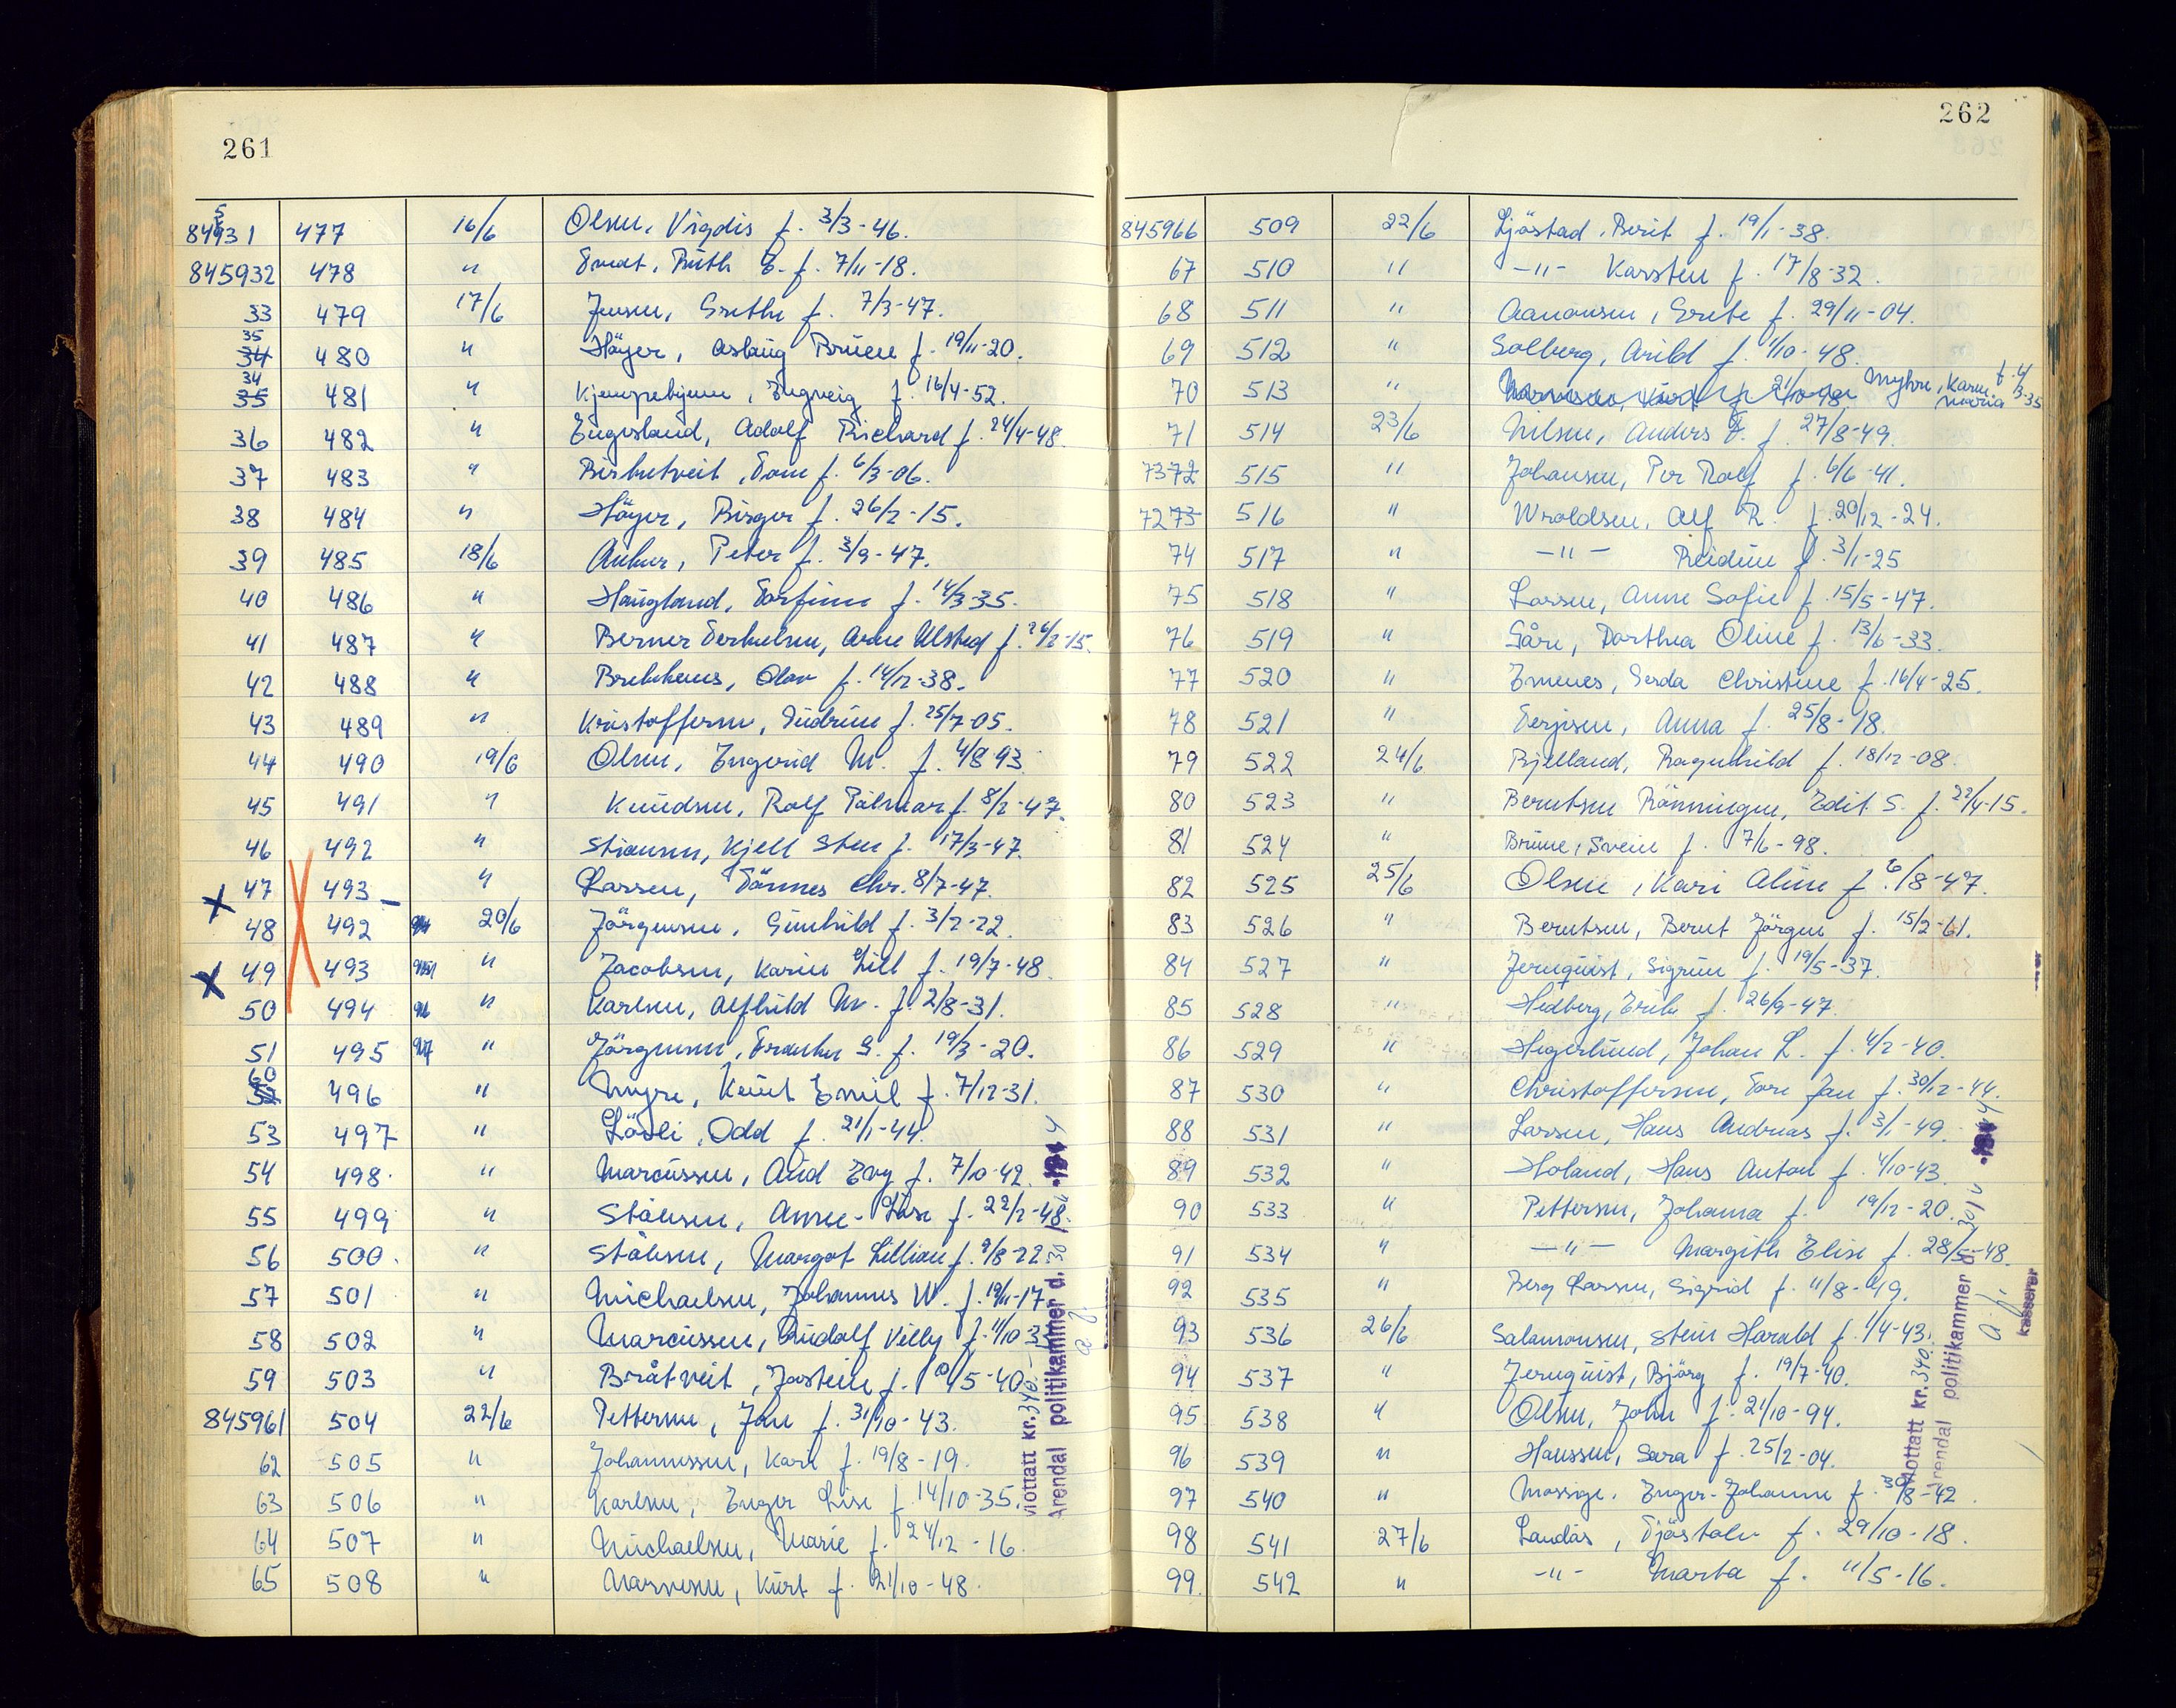 261
845931 477 16/6 Olsen, Vigdis f. 3/3-46.
845932 478 " Tvedt, Ruth E. f. 7/11-18.
33 479 17/6 Jensen, Grethe f. 7/3-47.
35 480 " Høyer, Aslaug Bruen f. 19/11-20.
34 481 " Kjempehjem, Ingveig f. 16/4-52.
36 482 " Engesland, Adolf Richard f. 24/4-48.
37 483 " Birketveit, Tom f. 6/3-06.
38 484 " Høyer, Birger f. 26/2-15.
39 485 18/6 Anker, Peter f. 3/9-47.
40 486 " Haugland, Torfinn f. 14/3-35.
41 487 " Berner Terkelsen, Arne Ulsted f. 26/2-15.
42 488 " Brekkhus, Olav f. 14/12-38.
43 489 " Kristoffersen, Gudrun f. 25/7-05.
44 490 19/6 Olsen, Ingerid M. f. 4/8 93
45 491 " Knudsen, Rolf Palmar f. 8/2-47.
46 492 " Stiansen, Kjell Sten f. 17/3-47.
47 493 " Larsen, Tønnes Chr. 8/7-47.
48 492 20/6 Jørgensen, Gunhild f. 3/2-22.
49 493 " Jacobsen, Karin Lill f. 19/7-48.
50 494 " Karlsen, Alfhild M. f. 2/8-31.
51 495 " Jørgensen, S. f. 19/3-20.
60 496 " Myre, Knut Emil f. 7/12-31.
53 497 " Løvli, Odd f. 21/1-44.
54 498. " Marcussen, Aud Evy f. 7/10-42.
55 499 " Ståhsen, Anne-Lise f. 22/2-48.
56 500. " Ståhsen, Margot Lillian f. 9/8-22.
57 501 " Michaelsen, Johannes W. f. 19/11-17
58 502 " Marcussen, Rudolf Villy f. 11/10-35
59 503 " Bråtveit, Jostein f. 10/5-40.
845961 504 22/6 Pettersen, Jan f. 31/10-43.
62 505 " Johannessen, Kari f. 19/8-19.
63 506 " Karlsen, Inger Lise f. 14/10-35.
64 507 " Michaelsen, Marie f. 24/12-16.
65 508 " Marvesen, Kurt f. 21/10-48.
Mottatt kr. 340.-
Arendal politikammer d. 30/
262
845966 509 22/6 Ljøstad, Berit f. 19/1-38.
67 510 " -"- Karsten f. 17/8-32.
68 511 " Aanonsen, Grete f. 29/11-04.
69 512 " Solberg, Arild f. 1/10-48.
70 513 " Myhre, Karen Maria f. 4/3-35
71 514 23/6 Nilsen, Anders T. f. 27/8-49.
73 72 515 " Johansen, Per Rolf f. 6/6-41.
72 73 516 " Wroldsen, Alf R. f. 20/12-24.
74 517 " -"- Reidun f. 3/1-25
75 518 " Larsen, Anne Sofie f. 15/5-47.
76 519 " Gåre, Dorthea Oline f. 13/6-33.
77 520 " Emenes, Gerda Christine f. 16/4-25.
78 521 " Terjesen, Anna f. 25/8-18.
79 522 24/6 Bjelland, Ragnhild f. 18/12-08.
80 523 " Berntsen Rønningen, Edit S. f. 22/4-15.
81 524 " Brune, Svein f. 7/6-98.
82 525 25/6 Olsen, Kari Aline f. 6/8-47.
83 526 " Berntsen, Bernt Jørgen f. 15/2-61.
84 527 " Jernquist, Sigrun f. 19/5-37.
85 528 " Hedberg, Erik f. 26/9-47.
86 529 " Hegerlund, Johan L. f. 4/2-40.
87 530 " Christoffersen, Tore Jan f. 30/12-44.
88 531 " Larsen, Hans Andreas f. 3/1-49.
89 532 " Holand, Hans Anton f. 4/10-43
90 533 " Pettersen, Johanna f. 19/12-20.
91 534 " -"- Margith Elise f. 28/5-48.
92 535 " Berg Larsen, Sigrid f. 11/8-49.
93 536 26/6 Salamonsen, Stein Harald f. 1/4-43.
94 537 " Jernquist, Bjørg f. 19/7-40.
95 538 " Olsen, John f. 21/10-94.
96 539 " Hanssen, Sara f. 25/2-04.
97 540 " Mossige, Inger-Johanne f. 30/8-42.
98 541 27/6 Landås, Tjøstolv f. 29/10-18.
99. 542 " -"- Marta f. 11/5-16.
Mottatt kr. 340.-
Arendal politikammer d. 30/
kasserer